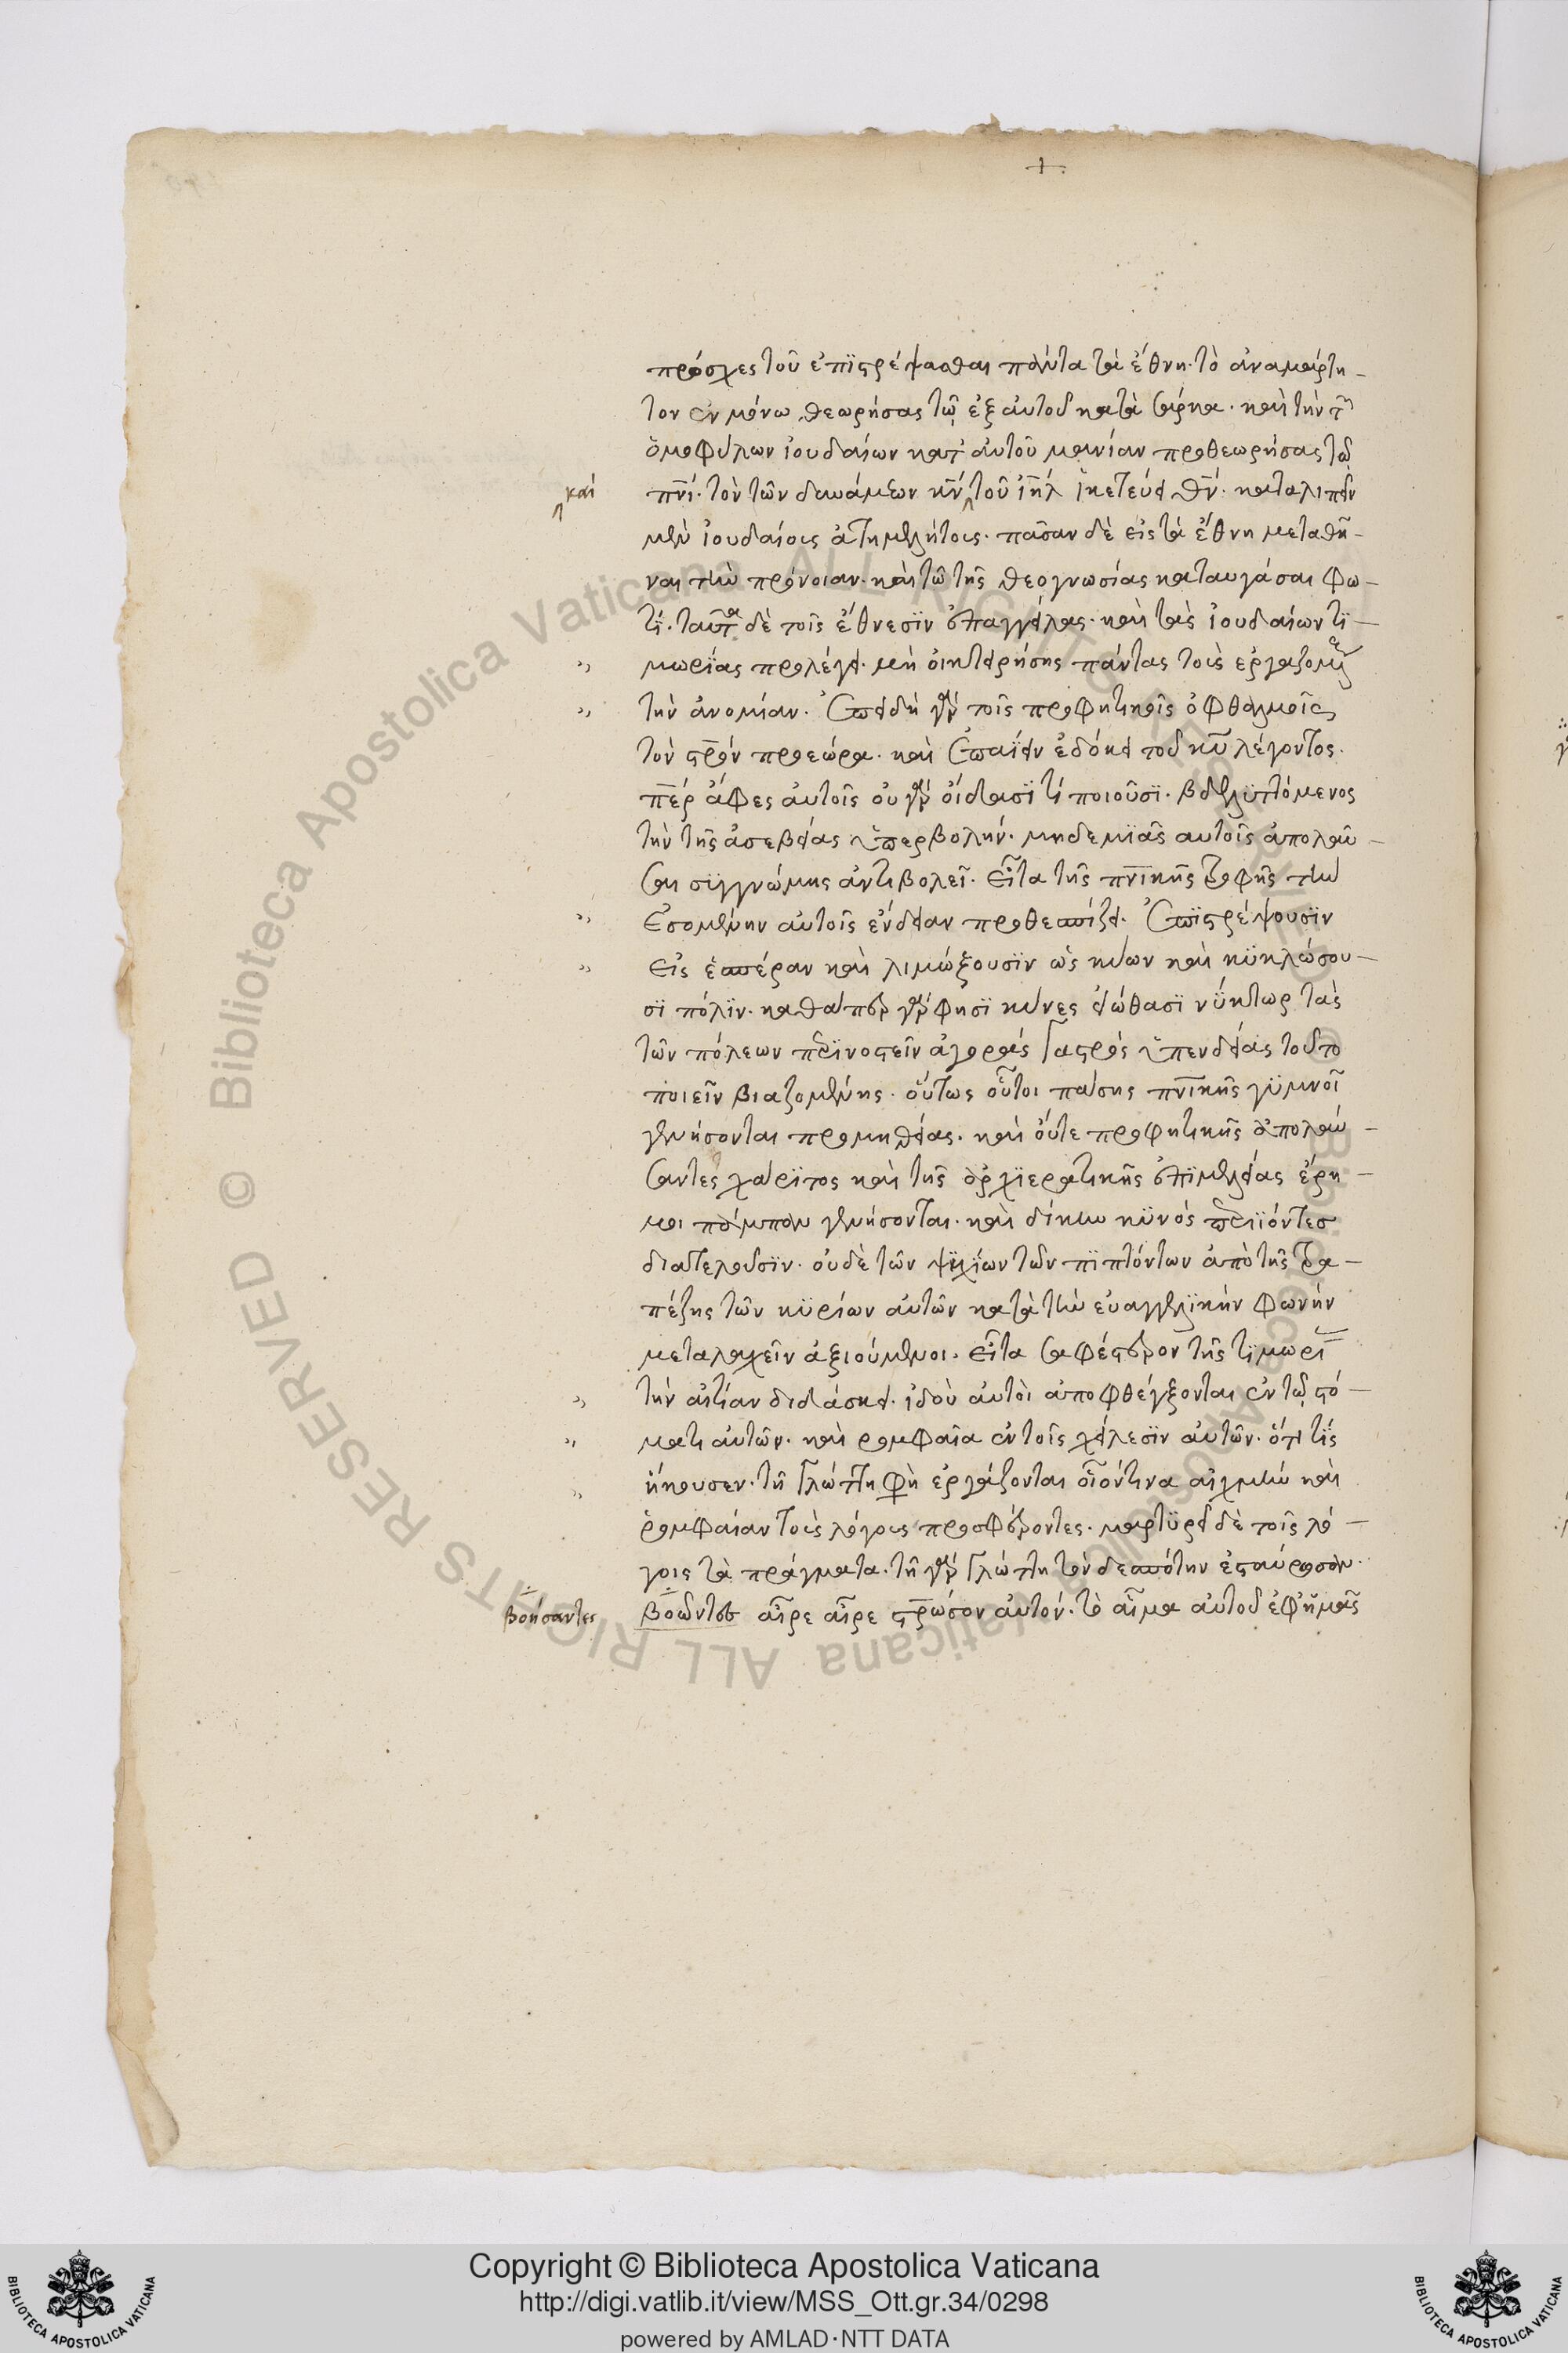 πρόσχες τοῦ ἐπϊστρέψασθαι πάντα τὰ ἔθνη· τὸ ἀναμάρτη-
τον ἐν μόνω θεωρήσας τῶ ἐξ αὐτοῦ κατὰ σάρκα· καὶ τὴν τῶν
ὁμοφύλων ἰουδαίων κατ' αὐτοῦ μανίαν προθεωρήσας τῶ
καὶ
πνι· τὸν τῶν δυνάμεων κν τοῦ ιηλ ἱκετεύει θν· καταλιπεῖν
μὲν ἰουδαίοις ἀτημελήτοις· πᾶσαν δὲ εἰς τὰ ἔθνη μεταθῆ-
ναι τὴν πρόνοιαν· καὶ τῶ τῆς θεογνωσίας καταυγάσαι φω-
τί· ταῦτα δὲ τοῖς ἔθνεσϊν ἐπαγγείλας· καὶ τὰς ἰουδαίων τϊ-
μωρϊας προλέγει· μὴ οἰκτειρήσης πάντας τοὺς ἐργαζομένους
τὴν ἀνομίαν. Ἐπειδὴ γὰρ τοῖς προφητικοῖς ὀφθαλμοῖς
τὸν στρόν προεώρα· καὶ ἐπαϊειν ἐδόκει τοῦ κυ λέγοντος·
περ ἄφες αὐτοῖς οὐ γὰρ οἴδασϊ τί ποιοῦσϊ· βδελϋττόμενος
τὴν τῆς ἀσεβείας ὑπερβολήν· μηδεμϊᾶς αὐτοῖς ἀπολαῦ-
σαι σϋγγνώμης ἀντιβολεῖ· εἶτα τῆς πνικῆς τροφῆς τὴν
ἐσομένην αὐτοῖς ἔνδειαν προθεσπίζει· Ἐπϊστρέψουσϊν
εἰς ἑσπέραν καὶ λιμώξουσϊν ὡς κύων καὶ κϋκλώσου-
σϊ πόλϊν· καθάπερ γάρ φησϊ κύνες εἰώθασϊ νϋκτωρ τὰς
τῶν πόλεων περϊνοστεῖν ἀγοράς γαστρός ὑπ' ἐνδείας τοῦτο
ποιεῖν βιαζομένης· οὕτως οὗτοι πάσης πνικῆς γϋμνοῖ
γενήσονται προμηθείας· καὶ οὔτε προφητικῆς ἀπολαύ-
σαντες χάρϊτος καὶ τῆς ἀρχϊερατικῆς ἐπϊμελείας ἔρη-
μοι πάμπαν γενήσονται· καὶ δίκην κϋνός περϊϊόντες
διατελοῦσϊν· οὐδὲ τῶν ψϊχίων τῶν πϊπτόντων ἀπὸ τῆς τρα-
πέζης τῶν κϋρίων αὐτῶν κατὰ τὴν εὐαγγελϊκὴν φωνήν
μεταλαχεῖν ἀξιούμενοι· εἶτα σαφέστερον τῆς τϊμωρι
τὴν αἰτίαν διδάσκει· ἰδοὺ αὐτοὶ ἀποφθέγξονται ἐν τῶ στό-
ματι αὐτῶν· καὶ ρομφαῖα ἐν τοῖς χείλεσϊν αὐτῶν· ὅτι τϊς
ἤκουσεν· τῆ γλώττη φὴ ἐργάζονται οἷόντινα αἰχμὴν καὶ
ῥομφαίαν τοὺς λόγους προσφέροντες· μαρτϋρεῖ δὲ τοῖς λό-
γοις τὰ πράγματα· τῆ γὰρ γλώττη τὸν δεσπότην ἐσταύρωσαν·
βοήσαντες
βοῶντες αἶρε αἶρε στρωσον αὐτόν· τὸ αἷμα αὐτοῦ ἐφ' ἡμᾶς
Copyright © Biblioteca Apostolica Vaticana
http://digi.vatlib.it/view/MSS_Ott.gr.34/0298
powered by AMLAD·NTT DATA